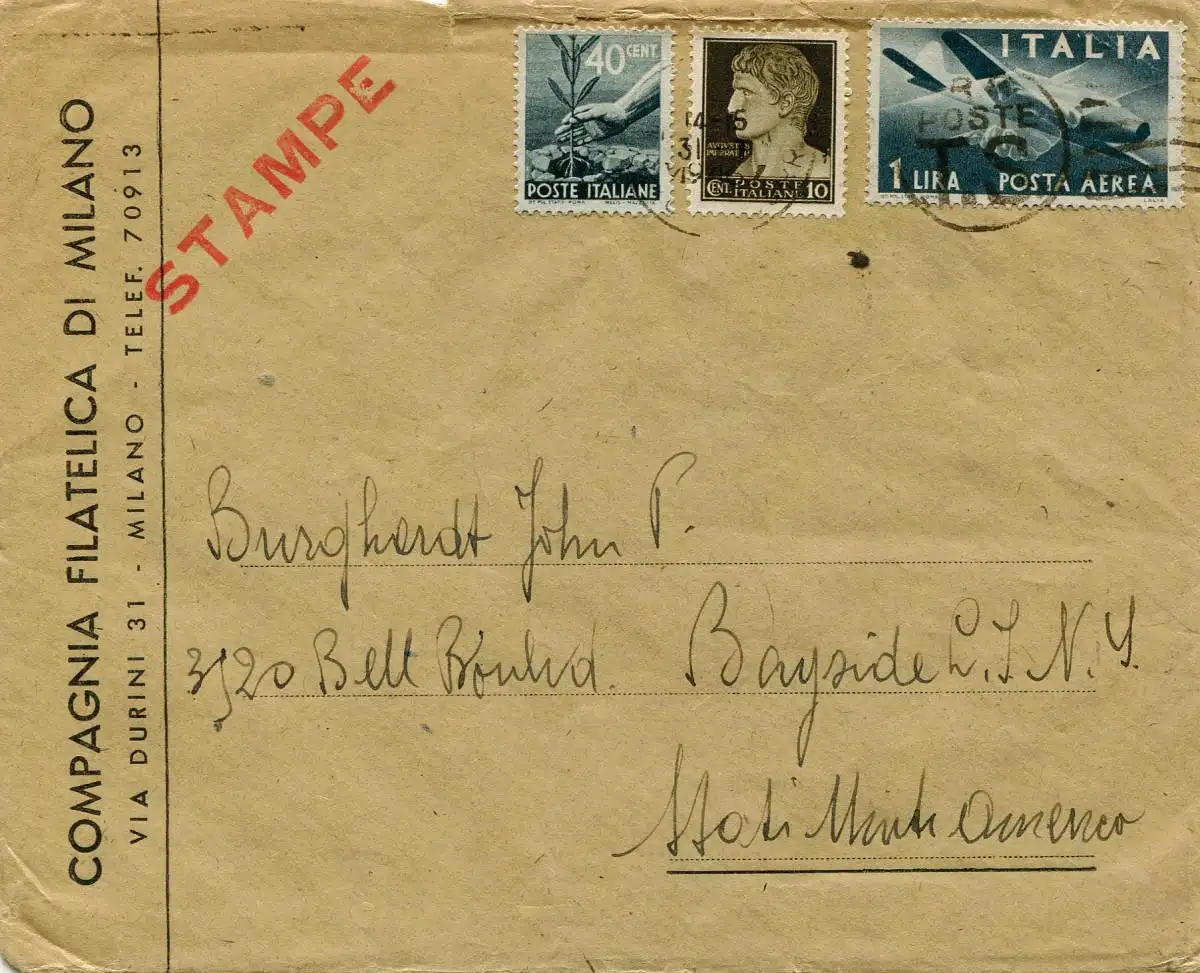 COMPAGNIA FILATELICA DI MILANO
VIA DURINI 31 - MILANO - TELEF. 70913
STAMPE
40 CENT.
POSTE ITALIANE
IST. POL. STATO - ROMA
AUGUSTUS
CENT. POSTE ITALIANE 10
ITALIA
1 LIRA POSTA AEREA
14-15
31
POSTE
Burghardt John P.
3520 Bell Boulvd. Bayside L. I. N. Y.
Stati Uniti America